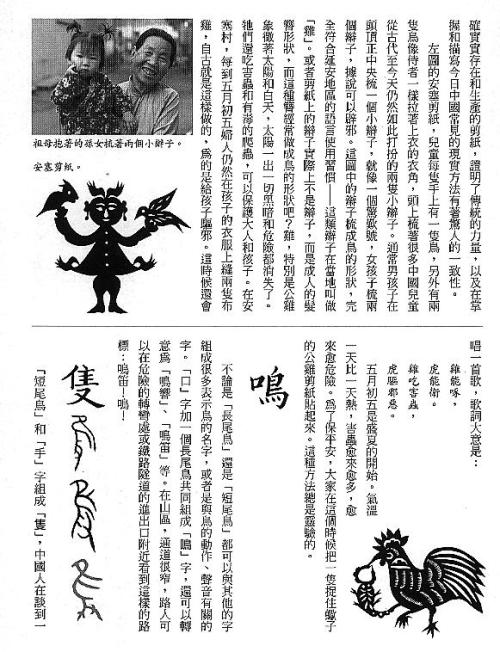 確實實存在和生產的剪紙，證明了傳統的力量，以及在掌
握和描寫今日中國常見的現實方法有著驚人的一致性。
左圖的安塞剪紙，兒童每隻手上有一隻鳥，另外有兩
隻鳥像侍者一樣拉著上衣的衣角，頭上梳著很多中國兒童
從古代至今天仍然如此打扮的兩隻小辮子。通常男孩子在
頭頂正中央梳一個小辮子，就像一個驚歎號，女孩子梳兩
個辮子，據說可以辟邪。這圖中的辮子梳成鳥的形狀，完
全符合延安地區的語言使用習慣——這類辮子在當地叫做
「雞」。或者剪紙上的辮子實際上不是辮子，而是成人的髮
髻形狀，而這種髻經常做成鳥的形狀吧？雞，特別是公雞
象徵著太陽和白天，太陽一出一切黑暗和危險都消失了。
牠們還吃害蟲和有毒的爬蟲，可以保護大人和孩子。在安
塞村，每到五月初五婦人仍然在孩子的衣服上縫兩隻布
雞，自古就是這樣做的，為的是給孩子驅邪。這時候還會
祖母抱著的孫女梳著兩個小辮子。
安塞剪紙。
唱一首歌，歌詞大意是：
雞能啄，
虎能銜。
雞吃害蟲，
虎驅邪惡。
五月初五是盛夏的開始。氣溫
一天比一天熱，害蟲愈來愈多，愈
來愈危險。為了保平安，大家在這個時候把一隻捉住蠍子
的公雞剪紙貼起來。這種方法總是靈驗的。
鳴
不論是「長尾鳥」還是「短尾鳥」都可以與其他的字
組成很多表示鳥的名字，或者是與鳥的動作、聲音有關的
字。「口」字加一個長尾鳥共同組成「鳴」字，還可以轉
意為「鳴響」、「鳴笛」等。在山區，通道很窄，路人可
以在危險的轉彎處或鐵路隧道的進出口附近看到這樣的路
標：鳴笛！鳴！
隻
「短尾鳥」和「手」字組成「隻」，中國人在談到一